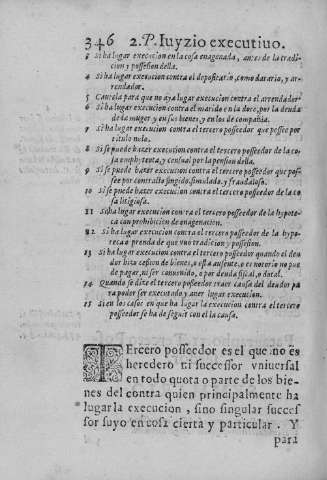 346 2. P. Iuyzio executiuo.
3 Si ha lugar execucion en la cosa enagenada, antes de la tradi-
cion y possesion della.
4 Si ha lugar execucion contra el depositario, como datario, y ar-
rendador.
5 Cautela para que no aya lugar execucion contra el arrendador
6 Si ha lugar execucion contra el marido en la dote, por la deuda
de la muger, y en sus bienes, y en los de compañia.
7 Si ha lugar execucion contra el tercero posseedor que possee por
titulo nulo.
8 Si se puede hazer execucion contra tercero posseedor de la co-
sa emphyteuta, y censual por la pension della.
9 Si se puede hazer execucion contra tercero posseedor que pos-
see por contracto fingido, simulado, y fraudaloso.
10 Si se puede hazer execucion contra el tercero posseedor de la co
sa litigiosa.
11 Si ha lugar execucion contra el tercero posseedor de la hypote-
ca con prohibicion de enagenacion.
12 Si ha lugar execucion contra el tercero posseedor de la hypo-
teca o prenda de que vuo tradicion y possesion.
13 Si ha lugar execucion contra el tercero posseedor quando el deu
dor hizo cession de bienes, o está ausente, o es notorio no pue
de pagar, u ser conuenido, o por deuda fiscal, o dotal.
14 Quando se dize el tercero posseedor traer causa del deudor pa
ra poder ser executado y auer lugar execucion.
15 Si en los casos en que ha lugar la execucion contra el tercero
possedor se ha de seguir con el la causa.
TErcero posseedor es el que no es
heredero ni successor vniuersal
en todo quota o parte de los bie-
nes del contra quien principalmente ha
lugar la execucion, sino singular succes
sor suyo en cosa cierta y particular. Y
para